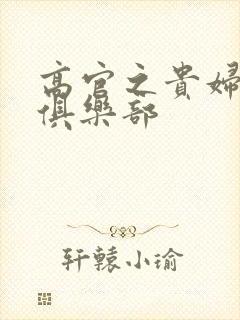 高官之貴婦
俱樂部
轩辕小瑜